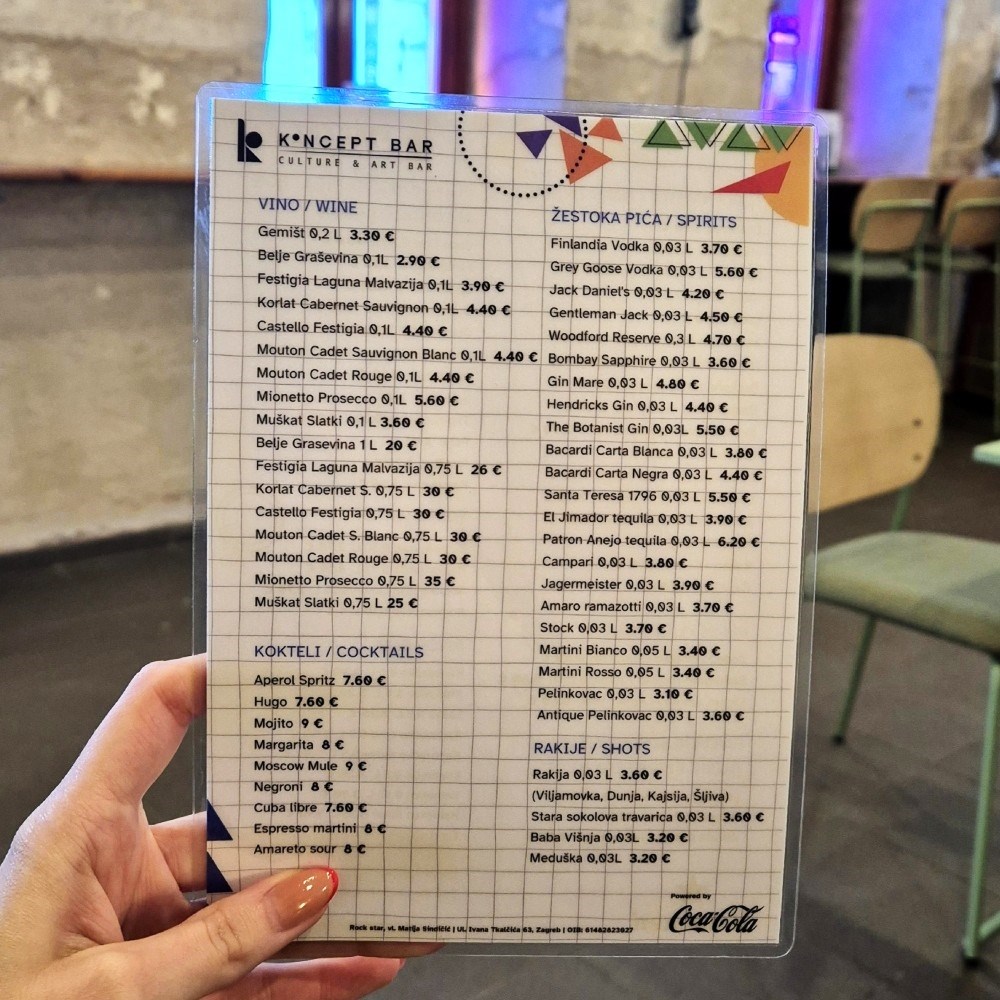 K•NCEPT BAR
CULTURE & ART BAR
VINO / WINE
Gemišt 0,2 L 3.30 €
Belje Graševina 0,1L 2.90 €
Festigia Laguna Malvazija 0,1L 3.90 €
Korlat Cabernet Sauvignon 0,1L 4.40 €
Castello Festigia 0,1L 4.40 €
Mouton Cadet Sauvignon Blanc 0,1L 4.40 €
Mouton Cadet Rouge 0,1L 4.40 €
Mionetto Prosecco 0,1L 5.60 €
Muškat Slatki 0,1 L 3.60 €
Belje Grasevina 1 L 20 €
Festigia Laguna Malvazija 0,75 L 26 €
Korlat Cabernet S. 0,75 L 30 €
Castello Festigia 0,75 L 30 €
Mouton Cadet S. Blanc 0,75 L 30 €
Mouton Cadet Rouge 0,75 L 30 €
Mionetto Prosecco 0,75 L 35 €
Muškat Slatki 0,75 L 25 €
KOKTELI / COCKTAILS
Aperol Spritz 7.60 €
Hugo 7.60 €
Mojito 9 €
Margarita 8 €
Moscow Mule 9 €
Negroni 8 €
Cuba libre 7.60 €
Espresso martini 8 €
Amareto sour 8 €
ŽESTOKA PIĆA / SPIRITS
Finlandia Vodka 0,03 L 3.70 €
Grey Goose Vodka 0,03 L 5.60 €
Jack Daniel's 0,03 L 4.20 €
Gentleman Jack 0,03 L 4.50 €
Woodford Reserve 0,3 L 4.70 €
Bombay Sapphire 0,03 L 3.60 €
Gin Mare 0,03 L 4.80 €
Hendricks Gin 0,03 L 4.40 €
The Botanist Gin 0,03L 5.50 €
Bacardi Carta Blanca 0,03 L 3.80 €
Bacardi Carta Negra 0,03 L 4.40 €
Santa Teresa 1796 0,03 L 5.50 €
El Jimador tequila 0,03 L 3.90 €
Patron Anejo tequila 0,03 L 6.20 €
Campari 0,03 L 3.80 €
Jagermeister 0,03 L 3.90 €
Amaro ramazotti 0,03 L 3.70 €
Stock 0,03 L 3.70 €
Martini Bianco 0,05 L 3.40 €
Martini Rosso 0,05 L 3.40 €
Pelinkovac 0,03 L 3.10 €
Antique Pelinkovac 0,03 L 3.60 €
RAKIJE / SHOTS
Rakija 0,03 L 3.60 €
(Viljamovka, Dunja, Kajsija, Šljiva)
Stara sokolova travarica 0,03 L 3.60 €
Baba Višnja 0,03L 3.20 €
Meduška 0,03L 3.20 €
Powered by
Coca-Cola
Rock star, vl. Matija Sindičić | Ul. Ivana Tkalčića 63, Zagreb | OIB: 61482823827